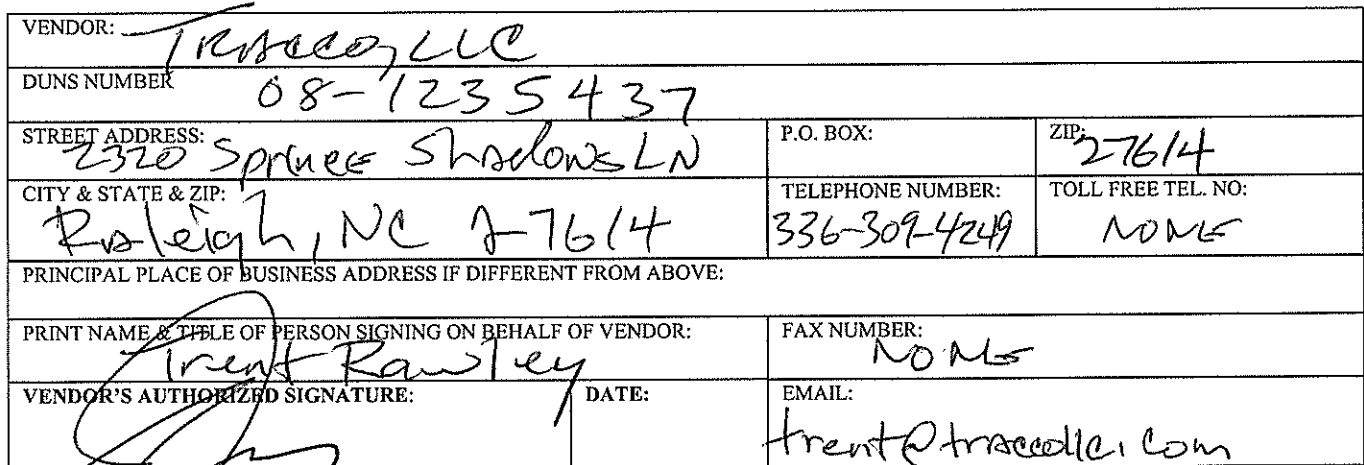 VENDOR: TRACCO, LLC
DUNS NUMBER 08-1235437
STREET ADDRESS: 2320 Spruce Shadows LN
P.O. BOX:
ZIP: 27614
CITY & STATE & ZIP: Raleigh, NC 27614
TELEPHONE NUMBER: 336-309-4249
TOLL FREE TEL. NO: NONE
PRINCIPAL PLACE OF BUSINESS ADDRESS IF DIFFERENT FROM ABOVE:
PRINT NAME & TITLE OF PERSON SIGNING ON BEHALF OF VENDOR: Trent Rawley
FAX NUMBER: NONE
VENDOR'S AUTHORIZED SIGNATURE:
DATE:
EMAIL: trent@traccollc.com